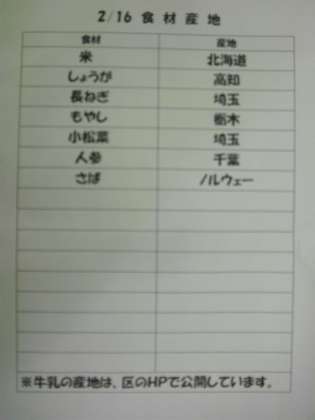 2/16 食材産地
食材 産地
米 北海道
しょうが 高知
長ねぎ 埼玉
もやし 栃木
小松菜 埼玉
人参 千葉
さば ノルウェー
※牛乳の産地は、区のHPで公開しています。